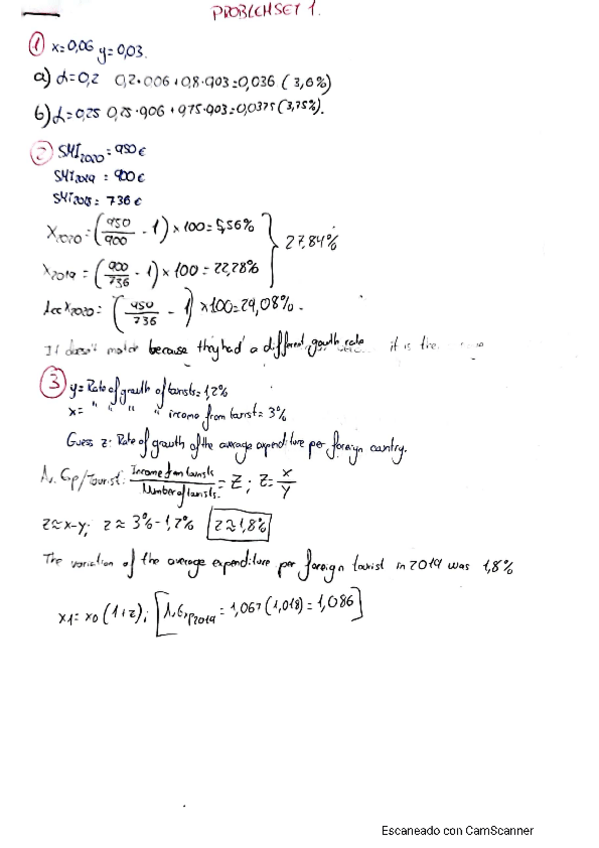 PROBLEMSET 1.
① x=0,06 y=0,03.
a) α=0,2 0,2·006+0,8·903=0,036 (3,6%)
b) α=0,25 0,25·906+975·903=0,0375 (3,75%).
② SMI2020=950€
SMI2019=900€
SMI2018=736€
X2020=(950/900 - 1)×100=5,56%
27,84%
X2019=(900/736 - 1)×100=22,28%
Acc X2020=(950/736 - 1)×100=29,08%.
It doesn't match because they had a different growth rate it is the
③ y=Rate of growth of tourists=1,2%
x= " " " " income from tourist=3%
Guess z: Rate of growth of the average expenditure per foreign country.
Av. Gp/Tourist: Income from tourists/Number of tourists = Z; Z=x/y
z≈x-y; z≈3%-1,2% z≈1,8%
The variation of the average expenditure per foreign tourist in 2019 was 1,8%
x1=x0(1+z); A.Gp2019=1,067(1,018)=1,086
Escaneado con CamScanner